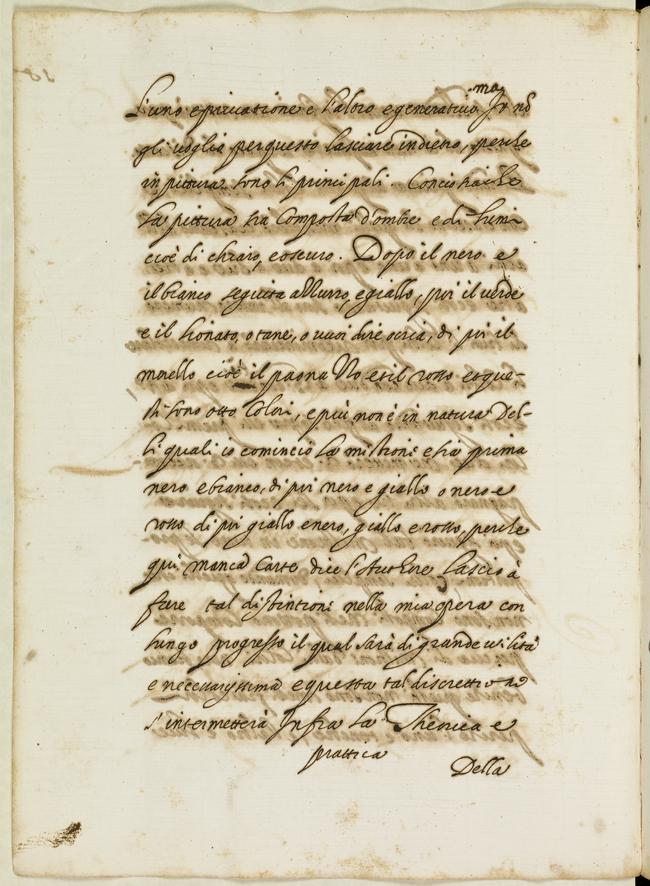 ma
L'uno e privatione e l'altro e generativo Jo nõ
gli voglio per questo lasciare indietro, perche
in pittura sono li principali. Conciosiache
la pittura sia composta d'ombre e di lumi
cioè di chiaro, e oscuro. Dopo il nero e
il bianco seguita azzurro, e giallo, poi il verde
e il lionato, o tane, o vuoi dire ocria, di poi il
morello cioè il paonazzo et il rosso e que-
sti sono otto Colori, e più non è in natura Del-
li quali io comincio la mistione e sia prima
nero e bianco, di poi nero e giallo o nero e
rosso di poi giallo e nero, giallo e rosso, perche
qui manca Carte dice l'Authore Lascio à
fare tal distintioni nella mia opera con
lungo progresso il qual sarà di grande utilità
e necessarissima e questa tal
s'intermetterà Infra la Theorica e
prattica
Della